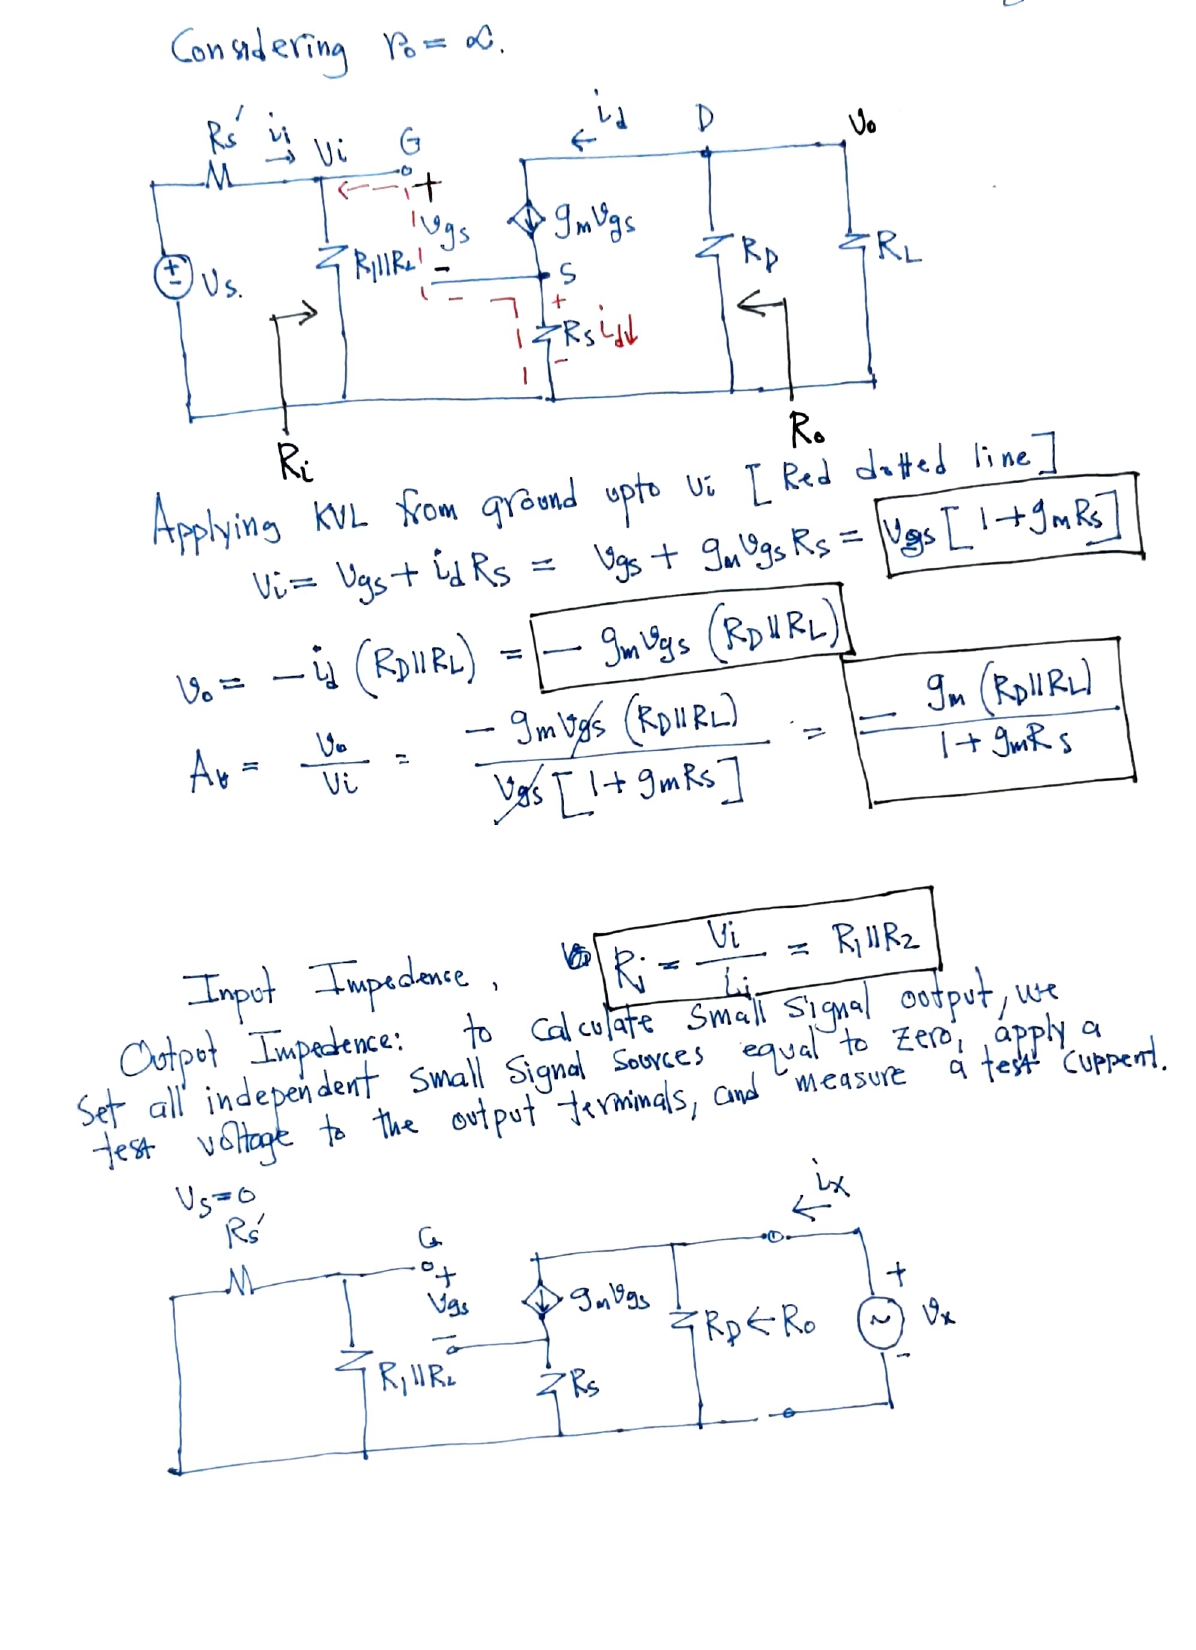 Considering r₀ = ∝.
Rs' ii Vi G id D Vo
+
Vgs gmVgs
Vs. R1||R2 - S RD RL
+
Rs id
-
Ri Ro
Applying KVL from ground upto Vi [Red dotted line]
Vi = Vgs + id Rs = Vgs + gmVgs Rs = Vgs [1 + gmRs]
Vo = - id (RD||RL) = - gmVgs (RD||RL)
Av = Vo/Vi = - gmVgs (RD||RL) / Vgs [1 + gmRs] = - gm (RD||RL) / 1 + gmRs
Input Impedence, Ri = Vi/ii = R1||R2
Output Impedence: to calculate small signal output, we
Set all independent small signal sources equal to zero, apply a
test voltage to the output terminals, and measure a test cuppent.
Vs=0
Rs' G ix
+ +
Vgs gmVgs RD ← Ro ~ Vx
- -
R1||R2 Rs